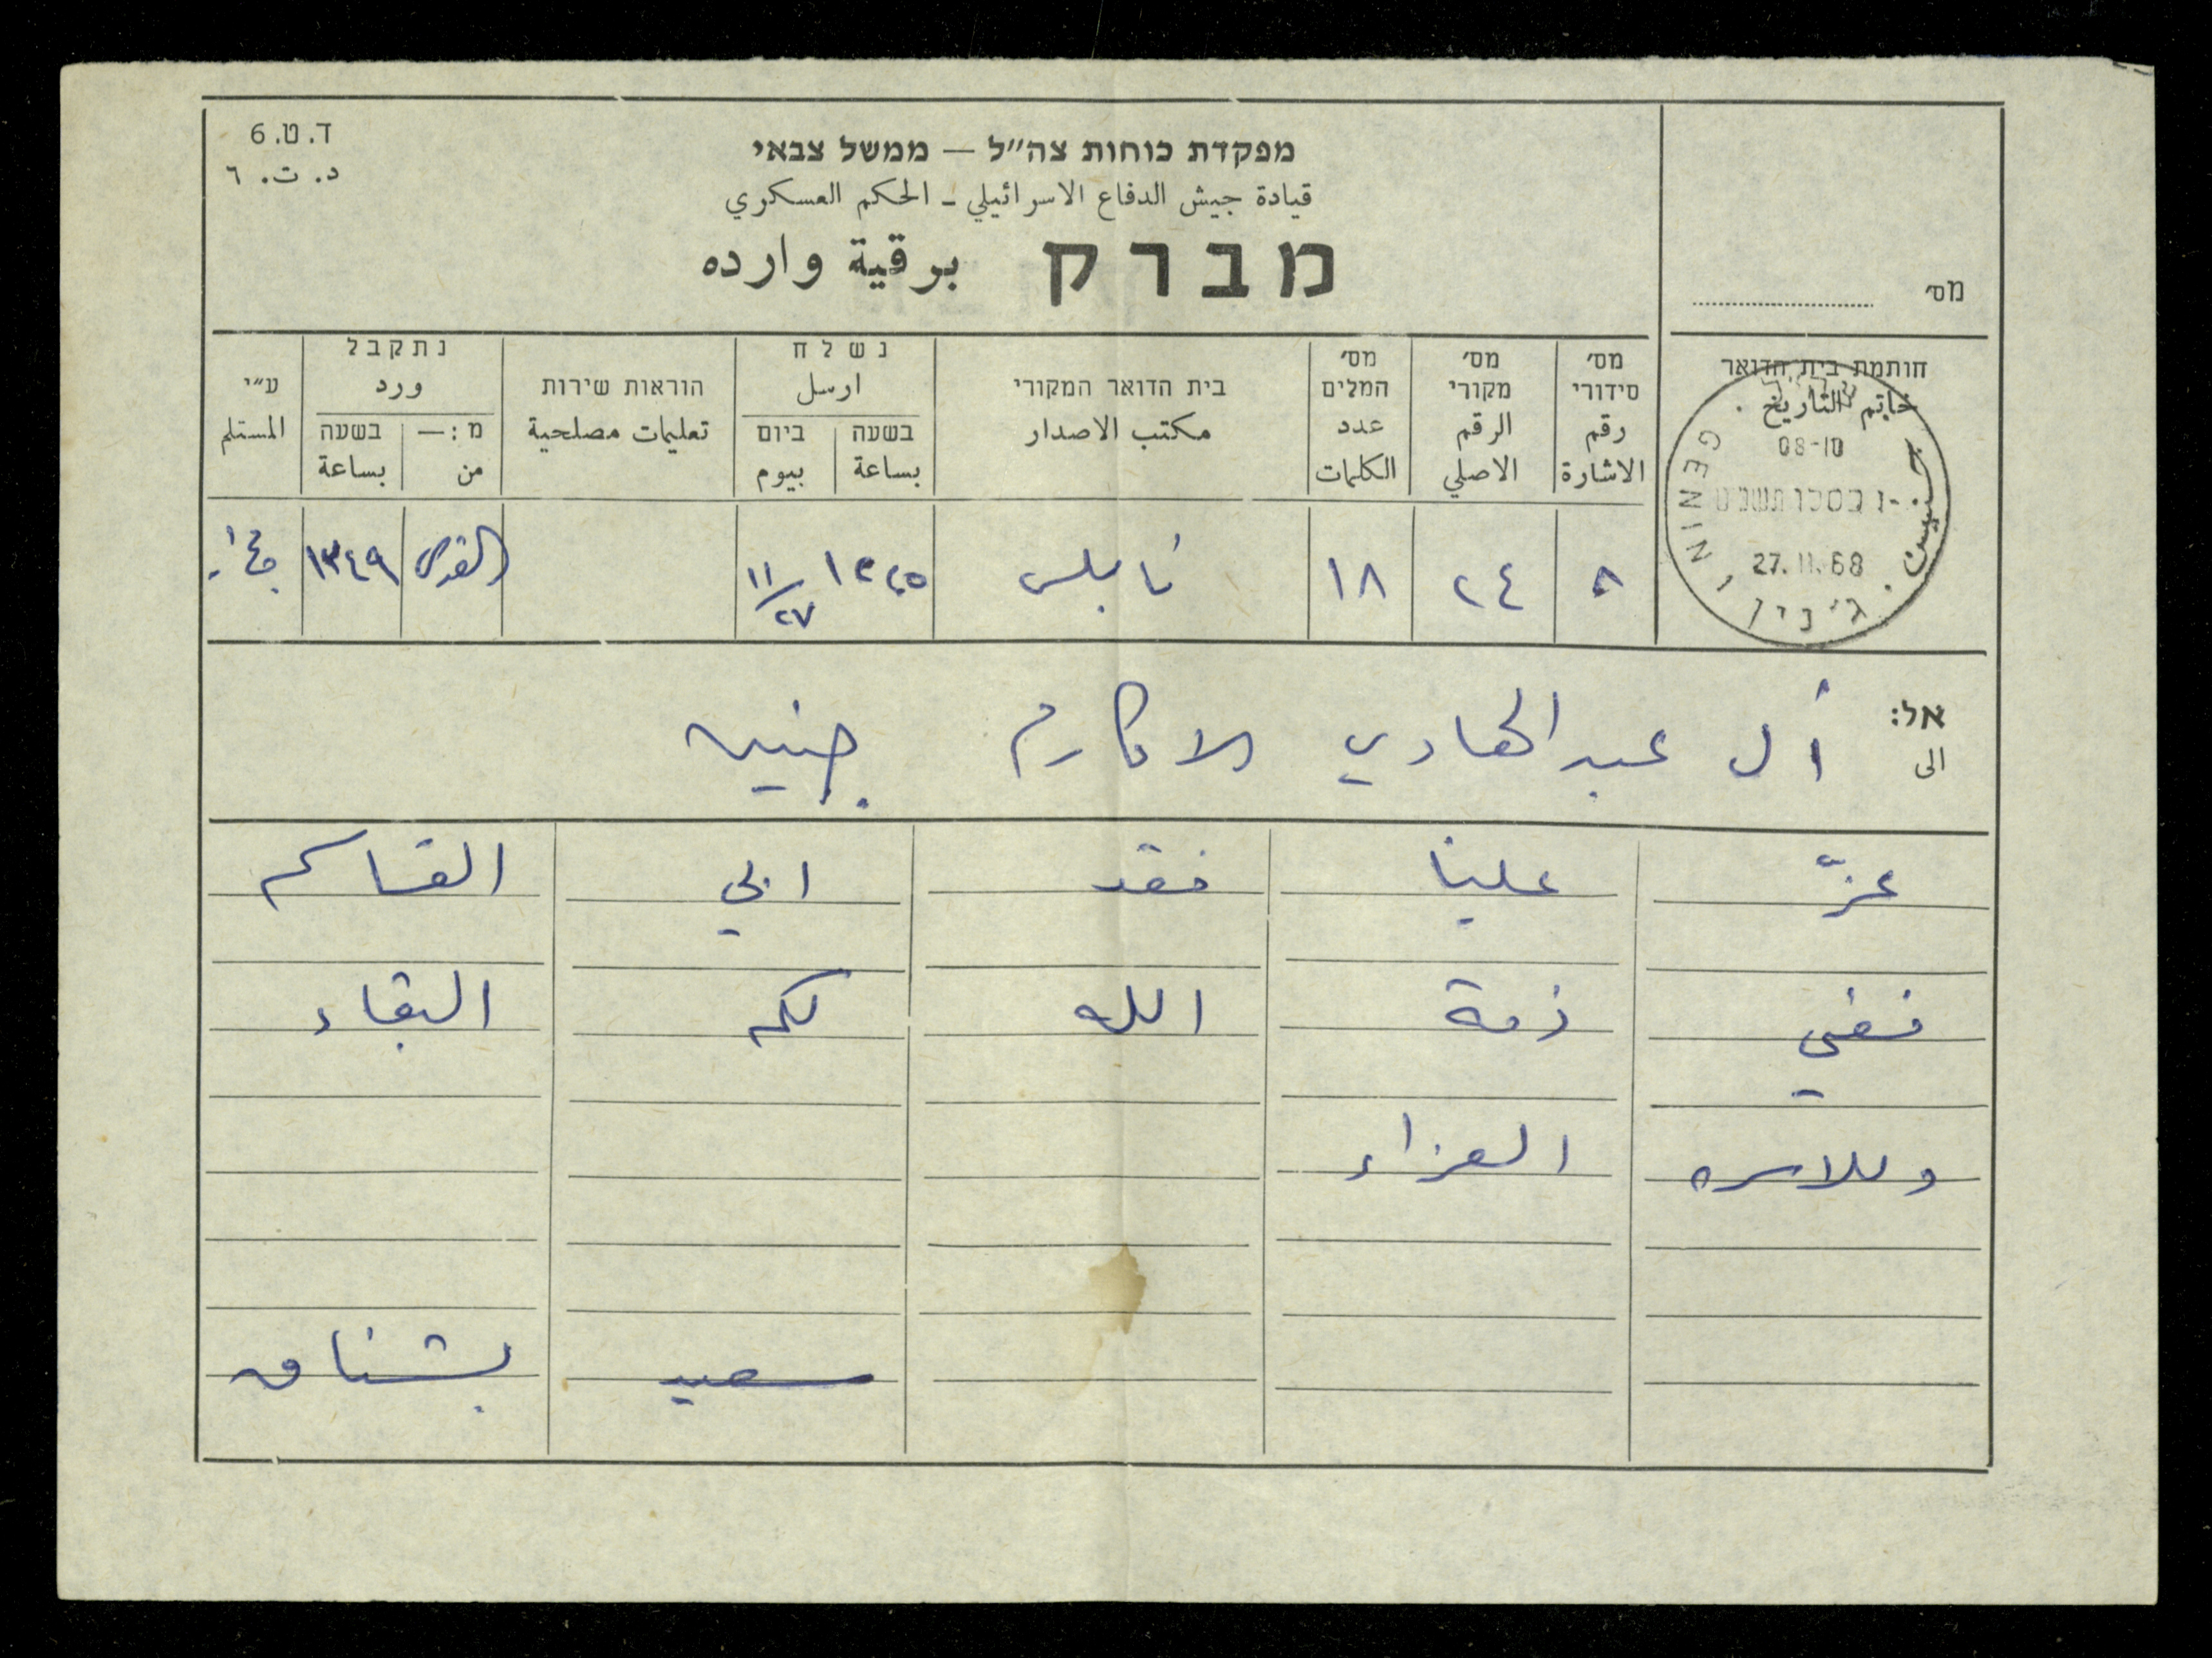 ד.ט.6
د. ت. ٦
מפקדת כוחות צה"ל — ממשל צבאי
قيادة جيش الدفاع الاسرائيلي - الحكم العسكري
מברק برقية وارده
מס׳
חותמת בית הדואר
خاتم التاريخ
08-10
27.11.68
GENIN
جنين
ג׳נין
מס׳ סידורי
رقم الاشارة
מס׳ מקורי
الرقم الاصلي
מס׳ המלים
عدد الكلمات
בית הדואר המקורי
مكتب الاصدار
נשלח
ارسل
בשעה
بساعة
ביום
بيوم
הוראות שירות
تعليمات مصلحية
נתקבל
ورد
מ:—
من
בשעה
بساعة
ע״י
المستلم
٨ ٢٤ ١٨ نابلس ١٣٢٥ ١١/٢٧ القدس ١٣٤٩
אל:
الى
أل عبد الهادي الاكارم جنين
عزّ علينا فقد ابي القاسم
ففي ذمة الله لكم البقاء
وللاسره العزاء
سعيد بشناق